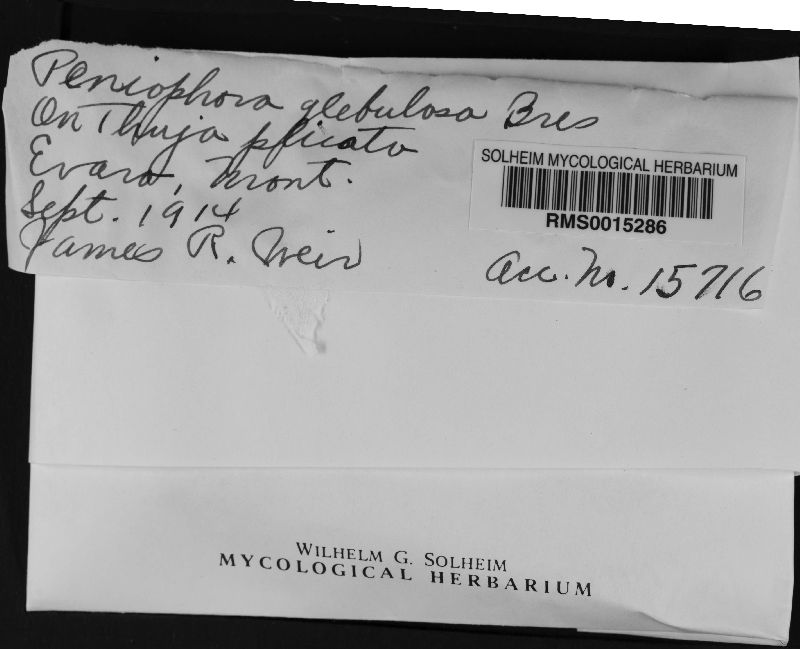 Peniophora glebulosa Bres
On Thuja plicata
Evaro, Mont.
Sept. 1914
James R. Weir
SOLHEIM MYCOLOGICAL HERBARIUM
RMS0015286
Acc. No. 15716
WILHELM G. SOLHEIM
MYCOLOGICAL HERBARIUM